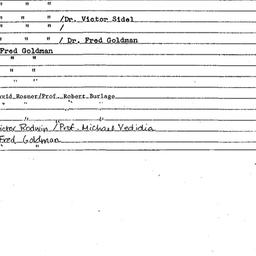 " " "
" " " /Dr. Victor Sidel
" " " /
" " " / Dr. Fred Goldman
Fred Goldman
" "
" "
" "
avid Rosner/Prof. Robert Burlage
" "
"
ictor Rodwin /Prof. Michael Vedidia
Fred Goldman
" "